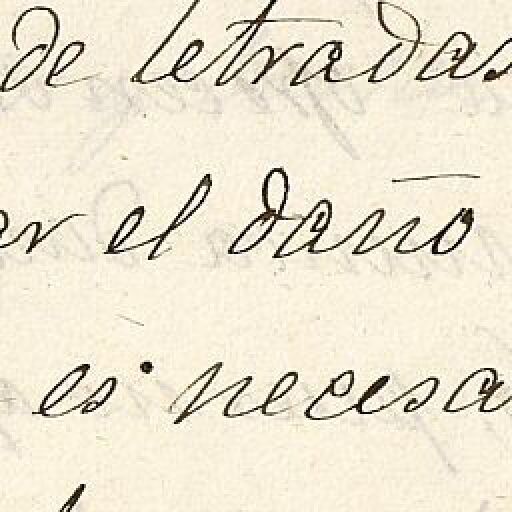 de letradas
er el daño
es necesa